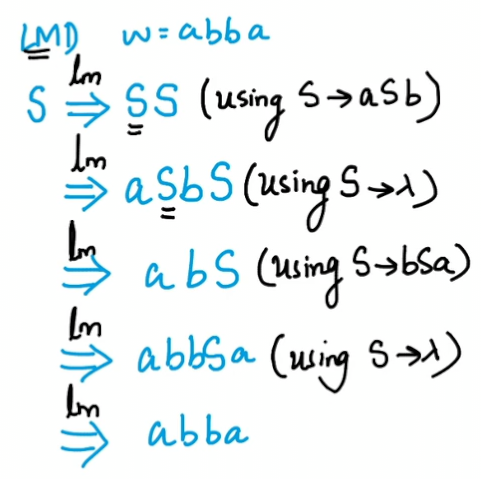 LMD w = abba
S lm⇒ SS (using S→aSb)
lm⇒ aSbS (using S→λ)
lm⇒ abS (using S→bSa)
lm⇒ abbSa (using S→λ)
lm⇒ abba